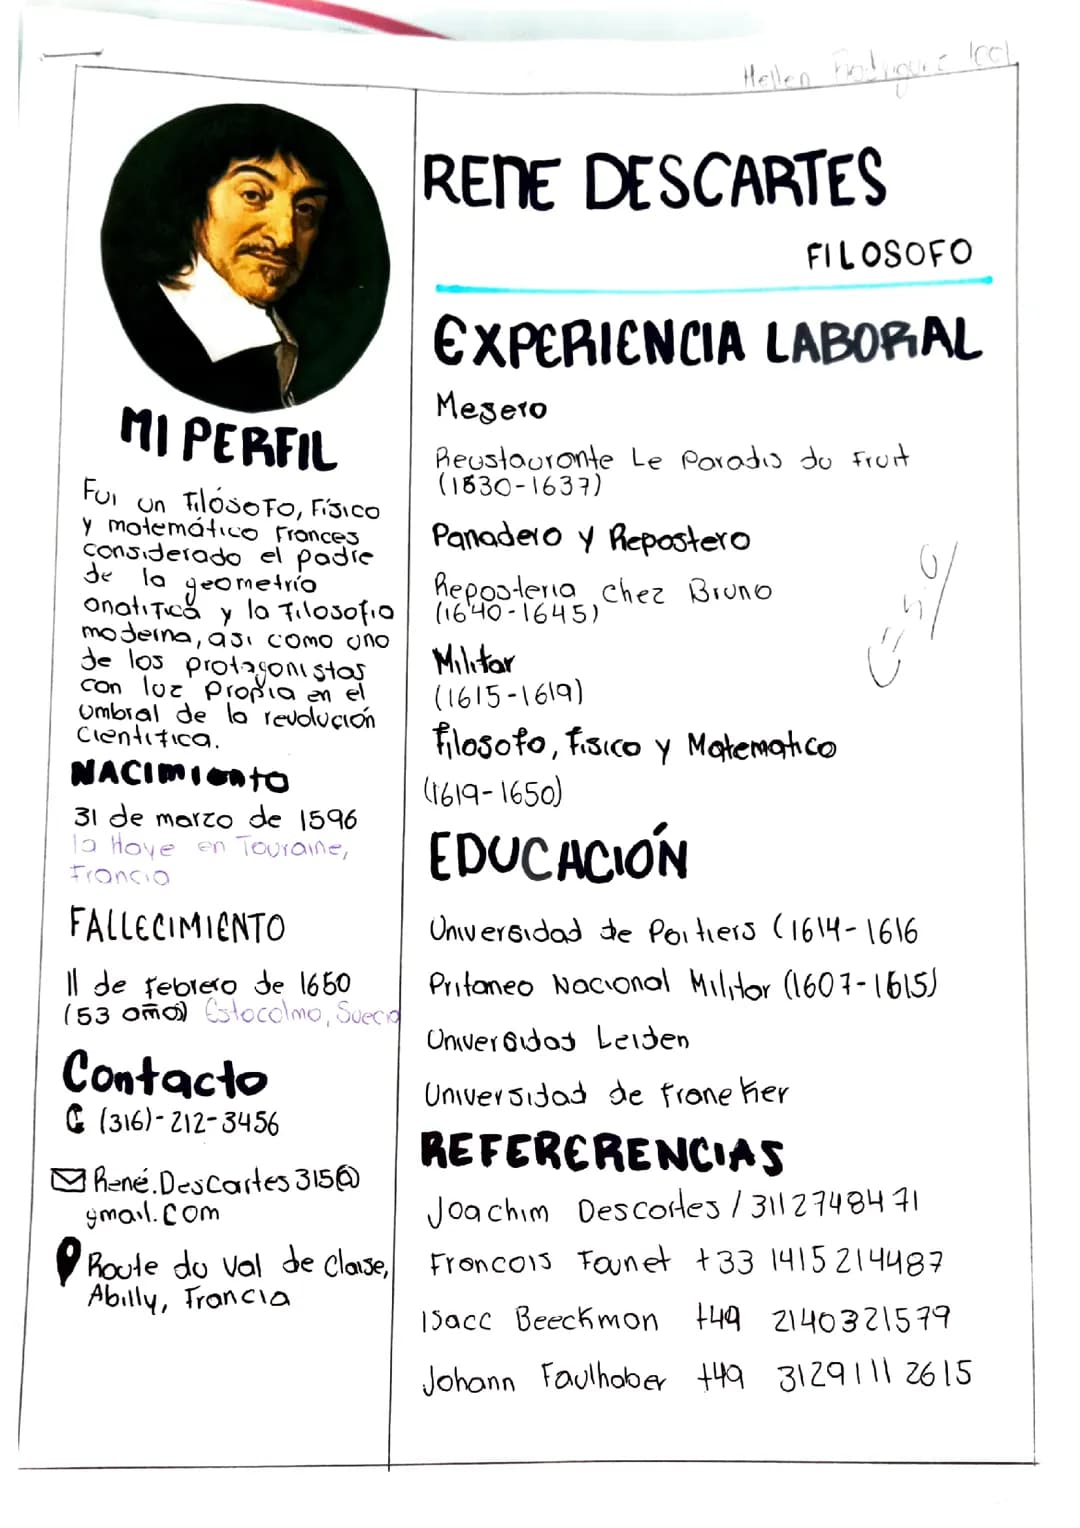 Hellen
RENE DESCARTES
FILOSOFO
MI PERFIL
Fui un Filósofo, Físico
y matemático Frances
considerado el padre
de la geometría
analitica y la Filosofia
moderna, asi como uno
de los protagonistas
con luz propia en el
umbral de la revolución
Cientifica.
NACIMIento
31 de marzo de 1596
la Haye en Touraine,
Francia
FALLECIMIENTO
11 de febrero de 1650
(53 años) Estocolmo, Suecia
Contacto
(316)-212-3456
René.Descartes315@
gmail.com
Route du Val de Claise,
Abilly, Francia
EXPERIENCIA LABORAL
Mesero
Reustaurante Le Paradis du Fruit
(1630-1637)
Panadero y Repostero
Reposteria chez Bruno
(1640-1645)
Militar
(1615-1619)
Filosofo, Fisico y Matematico
(1619-1650)
EDUCACIÓN
Universidad de Poitiers (1614-1616
Pritaneo Nacional Militar (1607-1615)
Universidad Leiden
Universidad de Franeker
REFERERENCIAS
Joachim Descartes / 3112748471
Francois Founet +33 1415214487
Isacc Beeckman +49 2140321579
Johann Faulhaber +49 31291112615